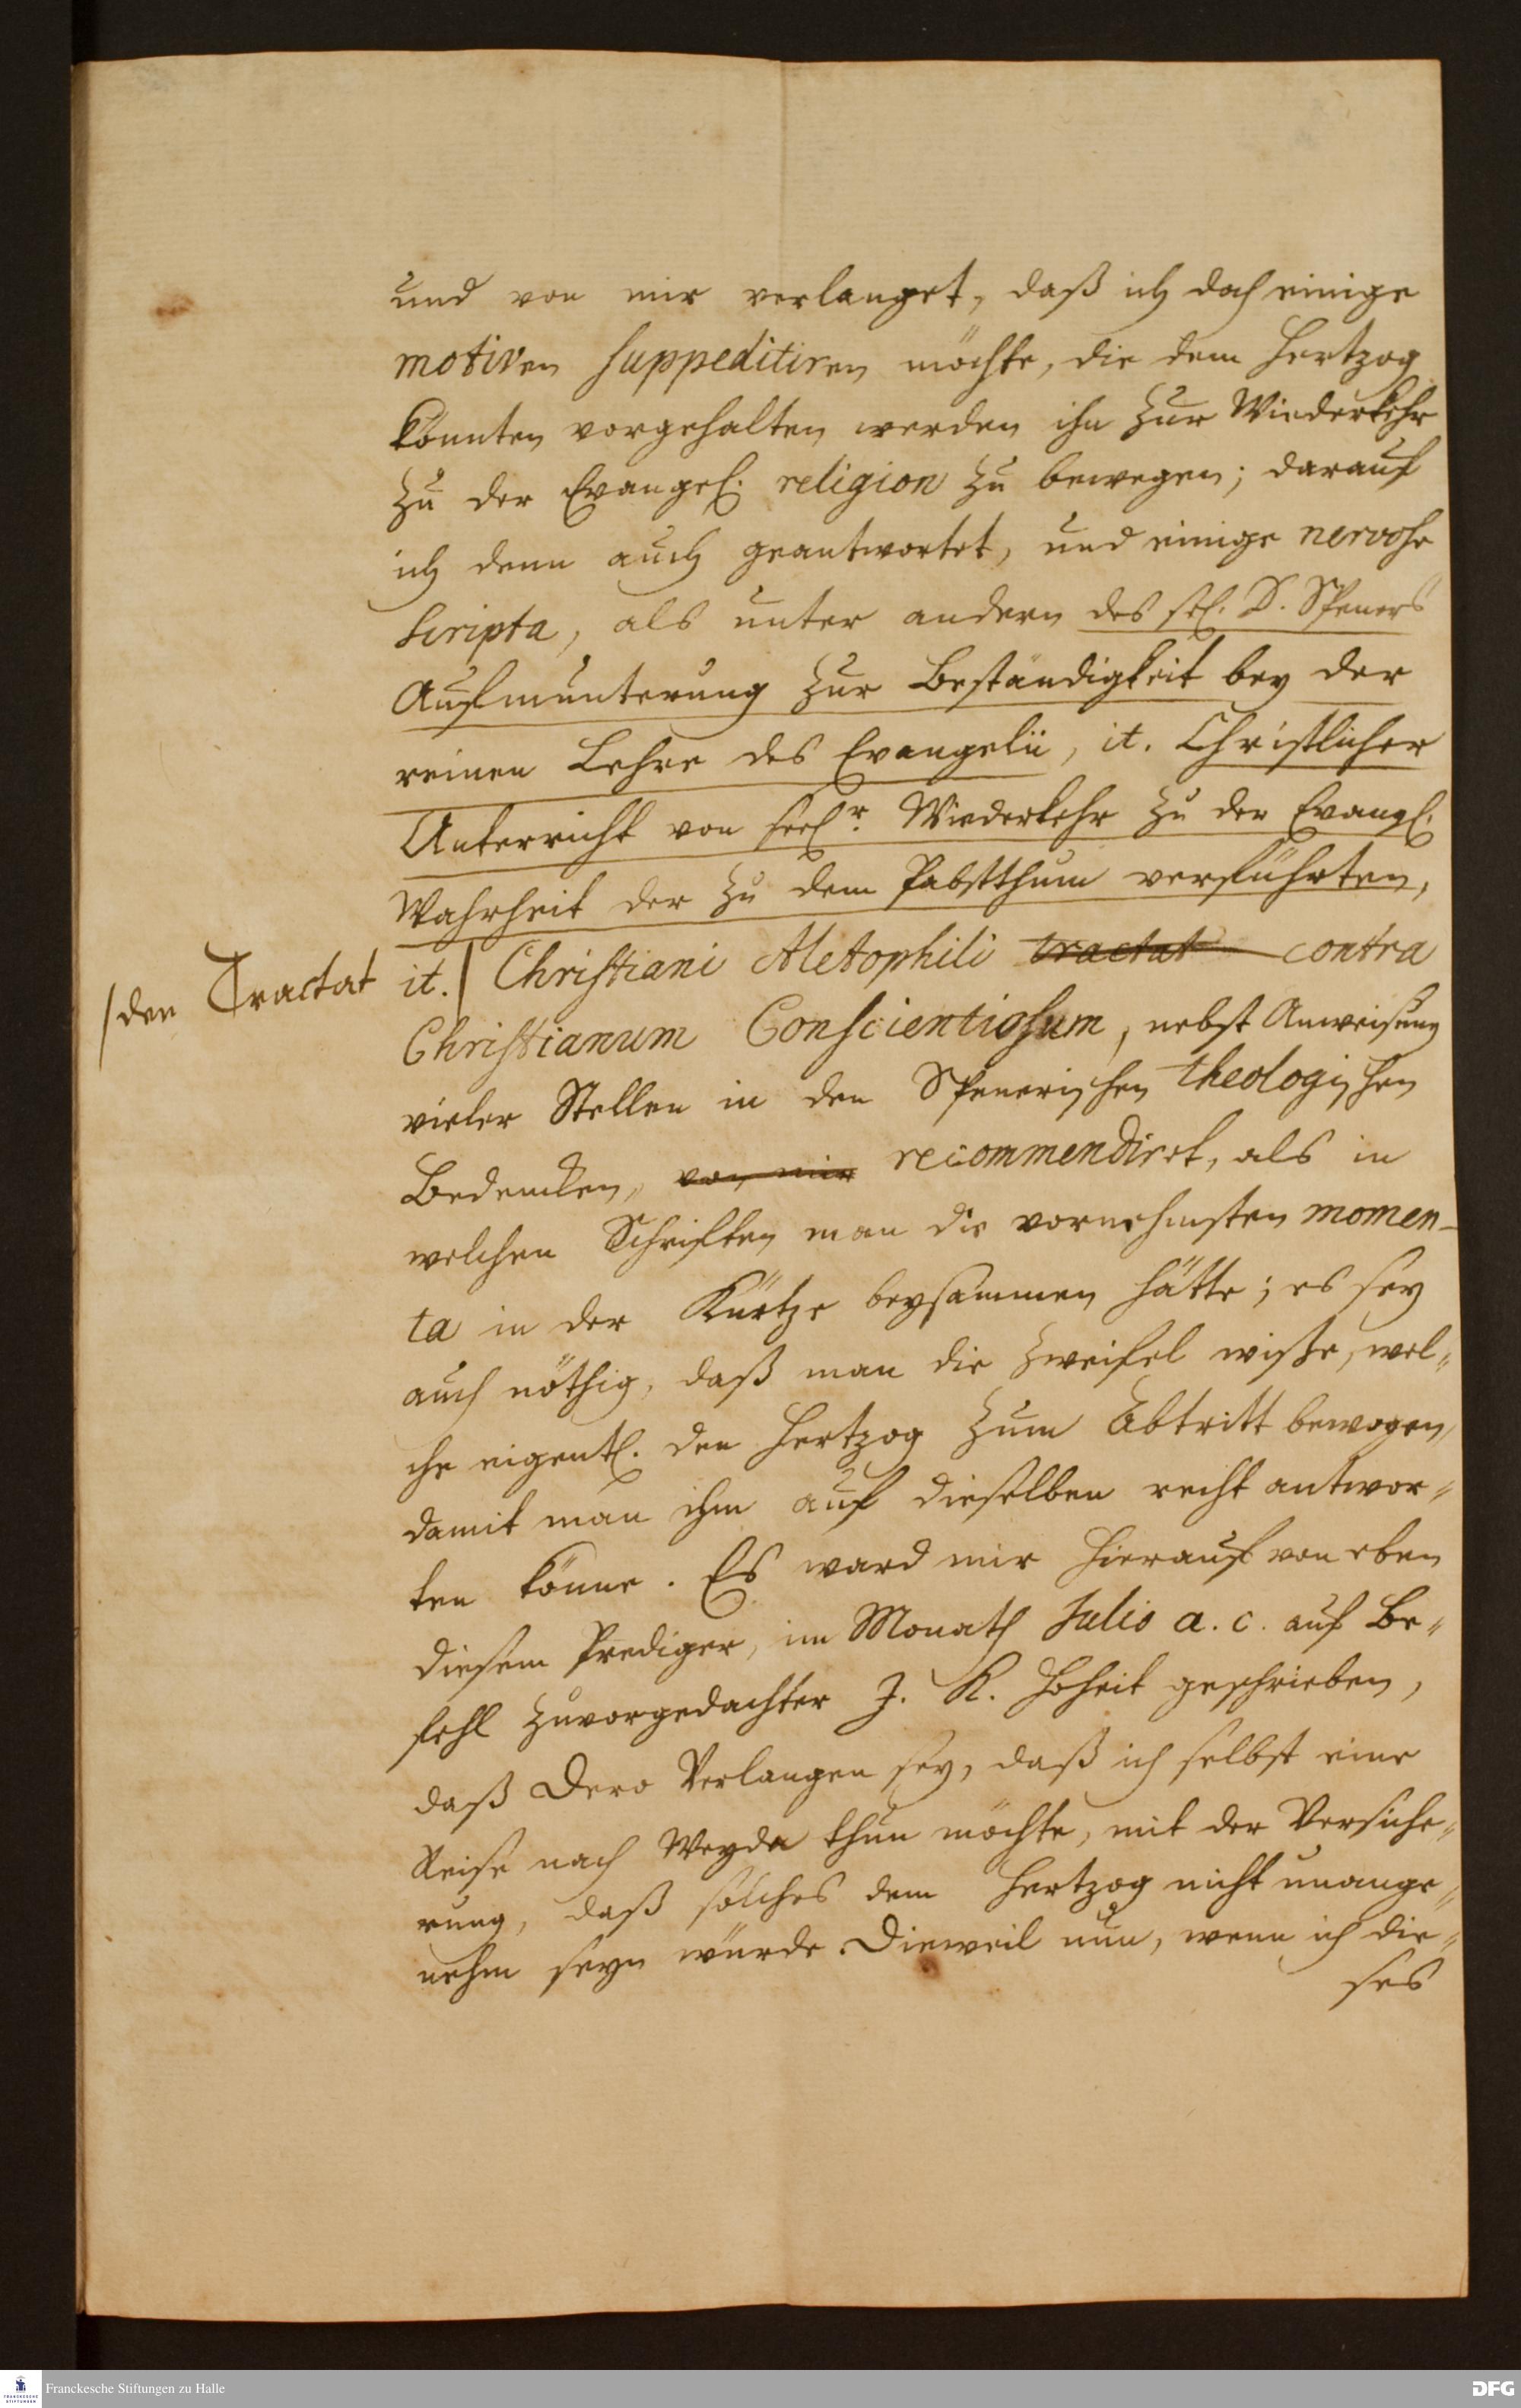 und von mir verlanget, daß ich doch einige
motiven suppeditiren möchte, die dem Hertzog
könnten vorgehalten werden ihn zur Wiederkehr
zu der Evangel. religion zu bewegen; darauf
ich denn auch geantwortet, und einige nervose
scripta, als unter andern des sel. D. Speners
Aufmunterung zur Beständigkeit bey der
reinen Lehre des Evangelii, it. Christlicher
Unterricht von seelr. Wiederkehr zu der Evangl.
Wahrheit der zu dem Pabstthum verführten,
/den Tractat it./ Christiani Aletophili tractat contra
Christianum Conscientiosum, nebst Anweisung
vieler Stellen in den Spenerischen theologischen
Bedencken, von mir recommendiret, als in
welchen Schrifften man die vornehmsten momen-
ta in der Kürtze beysammen hätte; es sey
auch nöthig, daß man die Zweifel wiße, wel-
che eigentl. den Hertzog zum Abtritt bewogen,
damit man ihm auf dieselben recht antwor-
ten könne. Es ward mir hierauf von eben
diesem Prediger, im Monath Julio a. c. auf Be-
fehl zuvorgedachter J. K. Hoheit geschrieben,
daß Dero Verlangen sey, daß ich selbst eine
Reise nach Weyda thun möchte, mit der Versiche-
rung, daß solches dem Hertzog nicht unange-
nehm seyn würde. Dieweil nun, wenn ich die-
ses
Franckesche Stiftungen zu Halle
DFG